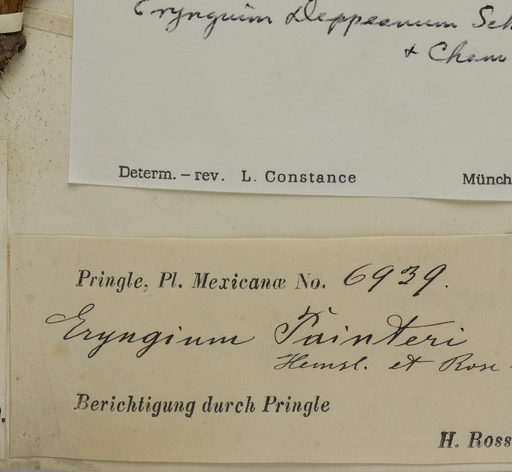 Eryngium Deppeanum Sch
& Cham
Determ. – rev. L. Constance Münch
Pringle, Pl. Mexicanæ No. 6939.
Eryngium Painteri
Hemsl. et Rose
Berichtigung durch Pringle
H. Ross